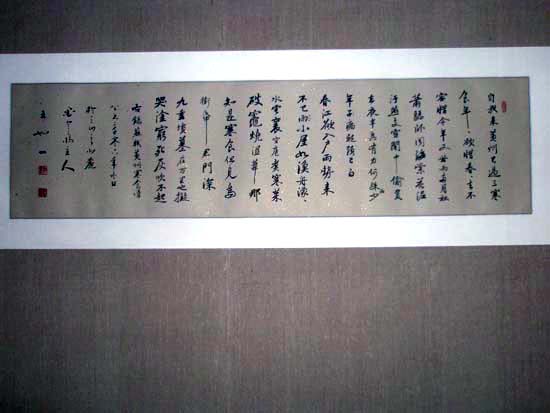 自我來黃州已過三寒
食年年欲惜春春不
容惜今年又苦雨兩月秋
蕭瑟臥聞海棠花泥
污燕支雪闇中偷負
去夜半真有力何殊少
年子病起頭已白
春江欲入户雨勢來
不已雨小屋如漁舟濛
水雲裏空庖煮寒菜
破竈燒濕葦那
知是寒食但見烏
銜帋君門深
九重墳墓在万里也擬
哭塗窮死灰吹不起
右錄蘇軾黃州寒食詩
主人